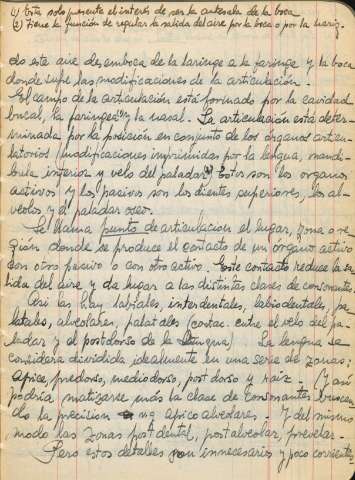 1) Esta solo presenta el interés de ser la antesala de la boca
2) Tiene la función de regular la salida del aire por la boca o por la nariz.
este aire desemboca de la laringe a la faringe y la boca
donde sufre las modificaciones de la articulación.
El campo de la articulación está formado por la cavidad
bucal, la faringea (1) y la nasal. La articulación está deter-
minada por la posición en conjunto de los órganos articu-
latorios (modificaciones imprimidas por la lengua, mandí
bula inferior y velo del paladar (2). Estos son los organos
activos y los pasivos son los dientes superiores, los al-
veolos y el paladar oseo.
Se llama punto de articulación el lugar, zona o re-
gión donde se produce el contacto de un organo activo
con otro pasivo o con otro activo. Este contacto reduce la sa
lida del aire y da lugar a las distintas clases de consonantes
Asi las hay labiales, interdentales, labiodentales,
alveolares, palatales (entre el velo del pa-
ladar y el postdorso de la lengua) La lengua se
considera dividida idealmente en una serie de zonas:
apice, predorso, mediodorso, postdorso y raiz. Y asi
podria matizarse más la clase de consonantes buscan
do la precision apico alveolares. Y del mismo
modo las zonas postdental, postalveolar, prevelar.
Pero estos detalles son innecesarios y poco corrientes